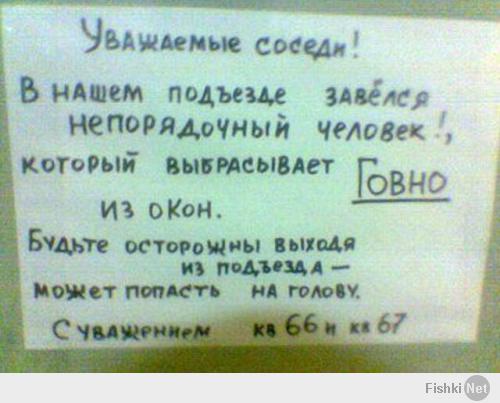 Уважаемые соседи!
В нашем подъезде завёлся
непорядочный человек!,
который выбрасывает Говно
из окон.
Будьте осторожны выходя
из подъезда —
может попасть на голову.
С уважением кв 66 и кв 67
Fishki Net